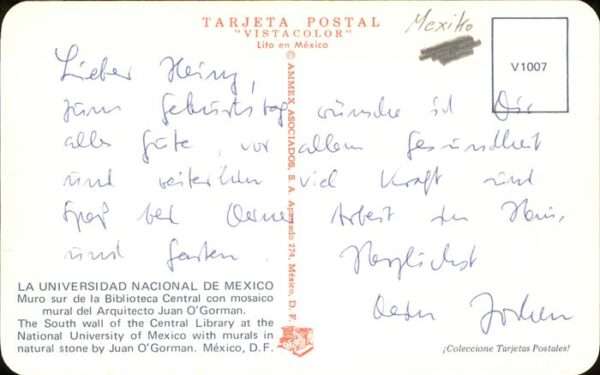 TARJETA POSTAL
"VISTACOLOR"
Lito en México
Mexiko
V1007
Lieber Heinz,
zum Geburtstag wünsche ich Dir
alles Gute, vor allem Gesundheit
und weiterhin viel Kraft und
Spaß bei Deiner Arbeit in Haus
und Garten.
Herzlichst
Dein Jochen
© AMMEX ASOCIADOS, S. A. Apartado 274, México, D. F.
LA UNIVERSIDAD NACIONAL DE MEXICO
Muro sur de la Biblioteca Central con mosaico
mural del Arquitecto Juan O'Gorman.
The South wall of the Central Library at the
National University of Mexico with murals in
natural stone by Juan O'Gorman. México, D.F.
¡Coleccione Tarjetas Postales!